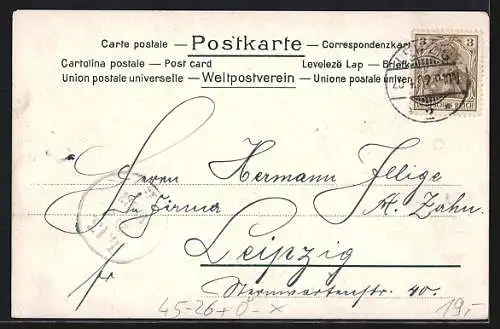 Carte postale — Postkarte — Correspondenzkarte
Cartolina postale — Post card Levelező Lap — Briefk
Union postale universelle — Weltpostverein — Unione postale univer
3 3
DEUTSCHES REICH
2
Herrn Hermann Illige
In Firma A. Zahn.
Leipzig
Sternwartenstr. 40.
45-26+0-x
19,-